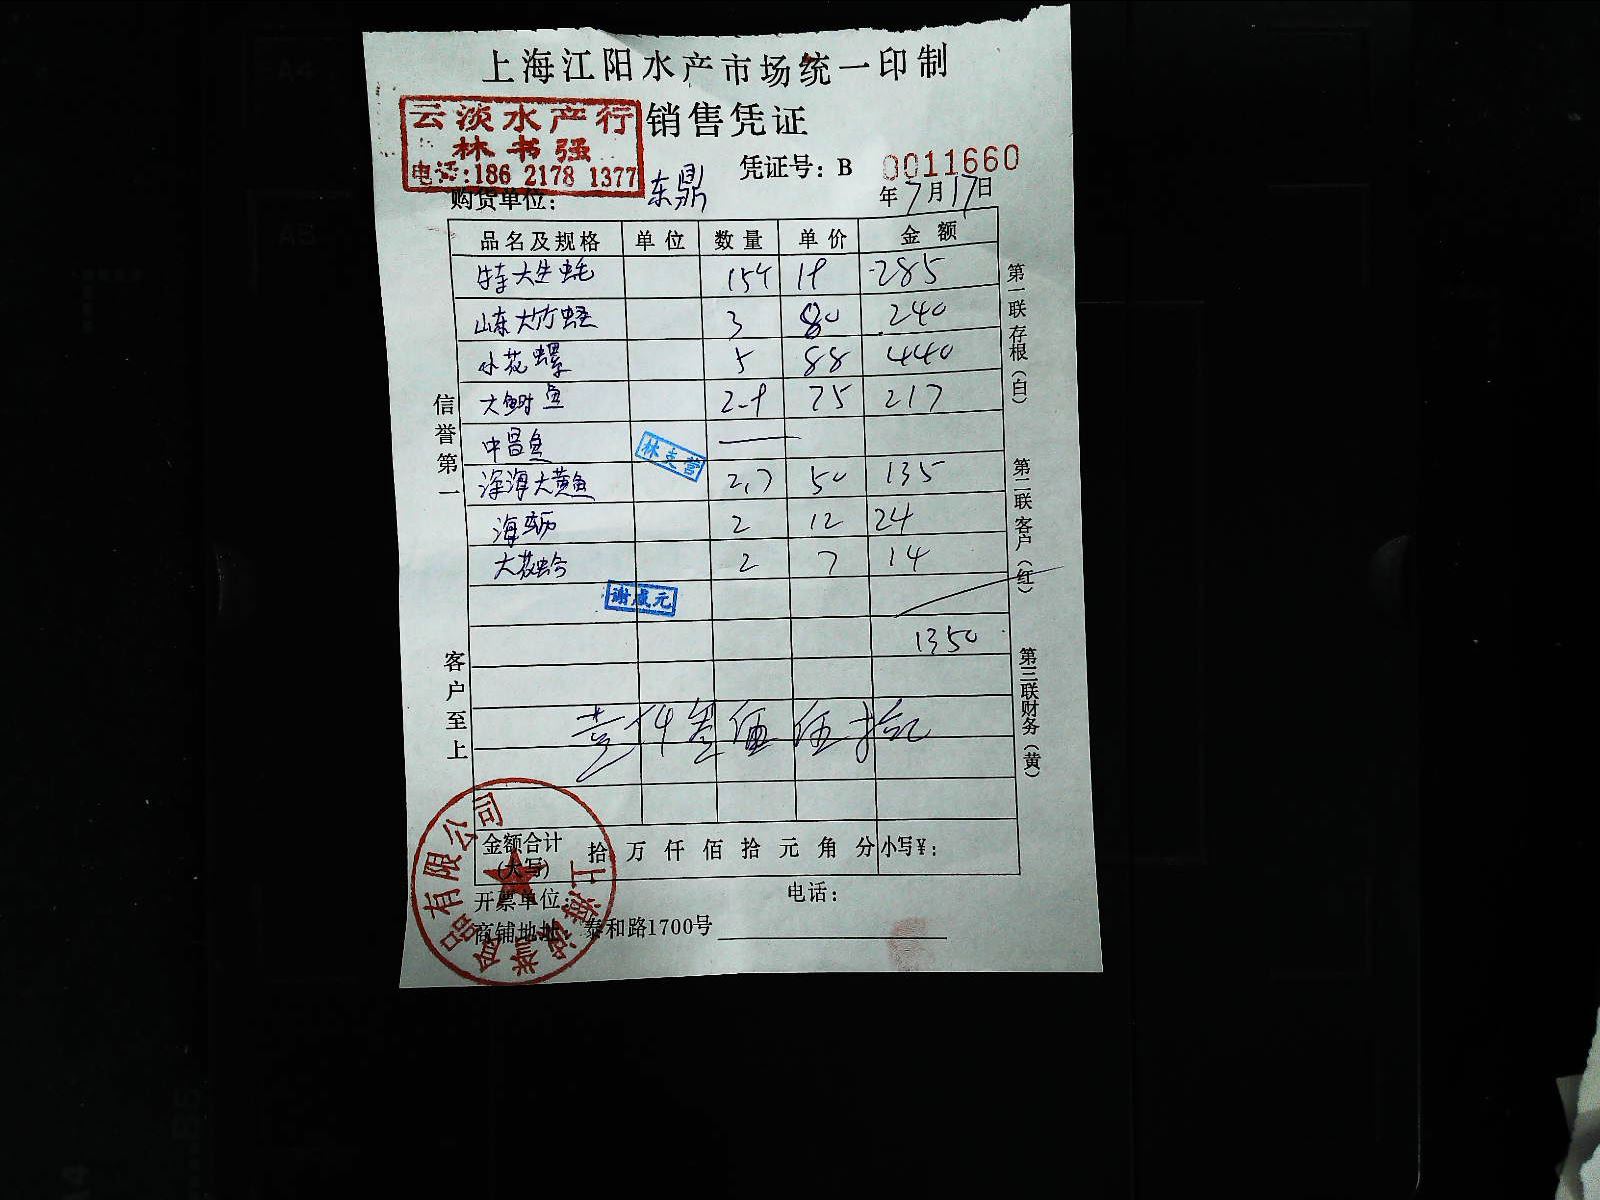 上海江阳水产市场统一印制
云淡水产行
林书强
电话:186 2178 1377
销售凭证
凭证号：B 0011660
购货单位： 东鼎
年7月17日
品名及规格 单位 数量 单价 金额
特大生蚝 19 285
山东大竹蛏 3 80 240
小花螺 5 88 440
大鲥鱼 2.9 75 217
中昌鱼
深海大黄鱼 2.7 50 135
海蛎 2 12 24
大花蛤 2 7 14
林支营
谢成元
1350
壹仟叁佰伍拾元
金额合计(大写) 拾 万 仟 佰 拾 元 角 分 小写¥：
开票单位： 电话：
商铺地址： 泰和路1700号
信誉第一
客户至上
第一联存根（白）
第二联客户（红）
第三联财务（黄）